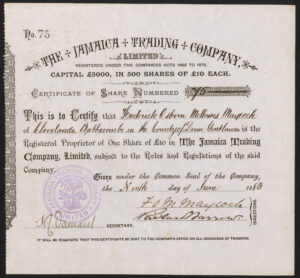 No. 75
THE JAMAICA TRADING COMPANY,
LIMITED
REGISTERED UNDER THE COMPANIES ACTS 1862 TO 1879.
CAPITAL £5000, IN 500 SHARES OF £10 EACH.
CERTIFICATE OF SHARE NUMBERED 75
This is to Certify that Frederick Osborn Mellows Maycock
of Clevelands, Babbacombe in the County of Devon Gentleman is the
Registered Proprietor of One Share of £10 in The Jamaica Trading
Company, Limited, subject to the Rules and Regulations of the said
Company.
Given under the Common Seal of the Company,
the Ninth day of June 188
F O M Maycock
SECRETARY.
DIRECTORS
IT WILL BE REQUIRED THAT THIS CERTIFICATE BE SENT TO THE COMPANY'S OFFICE ON ALL OCCASIONS OF TRANSFER.